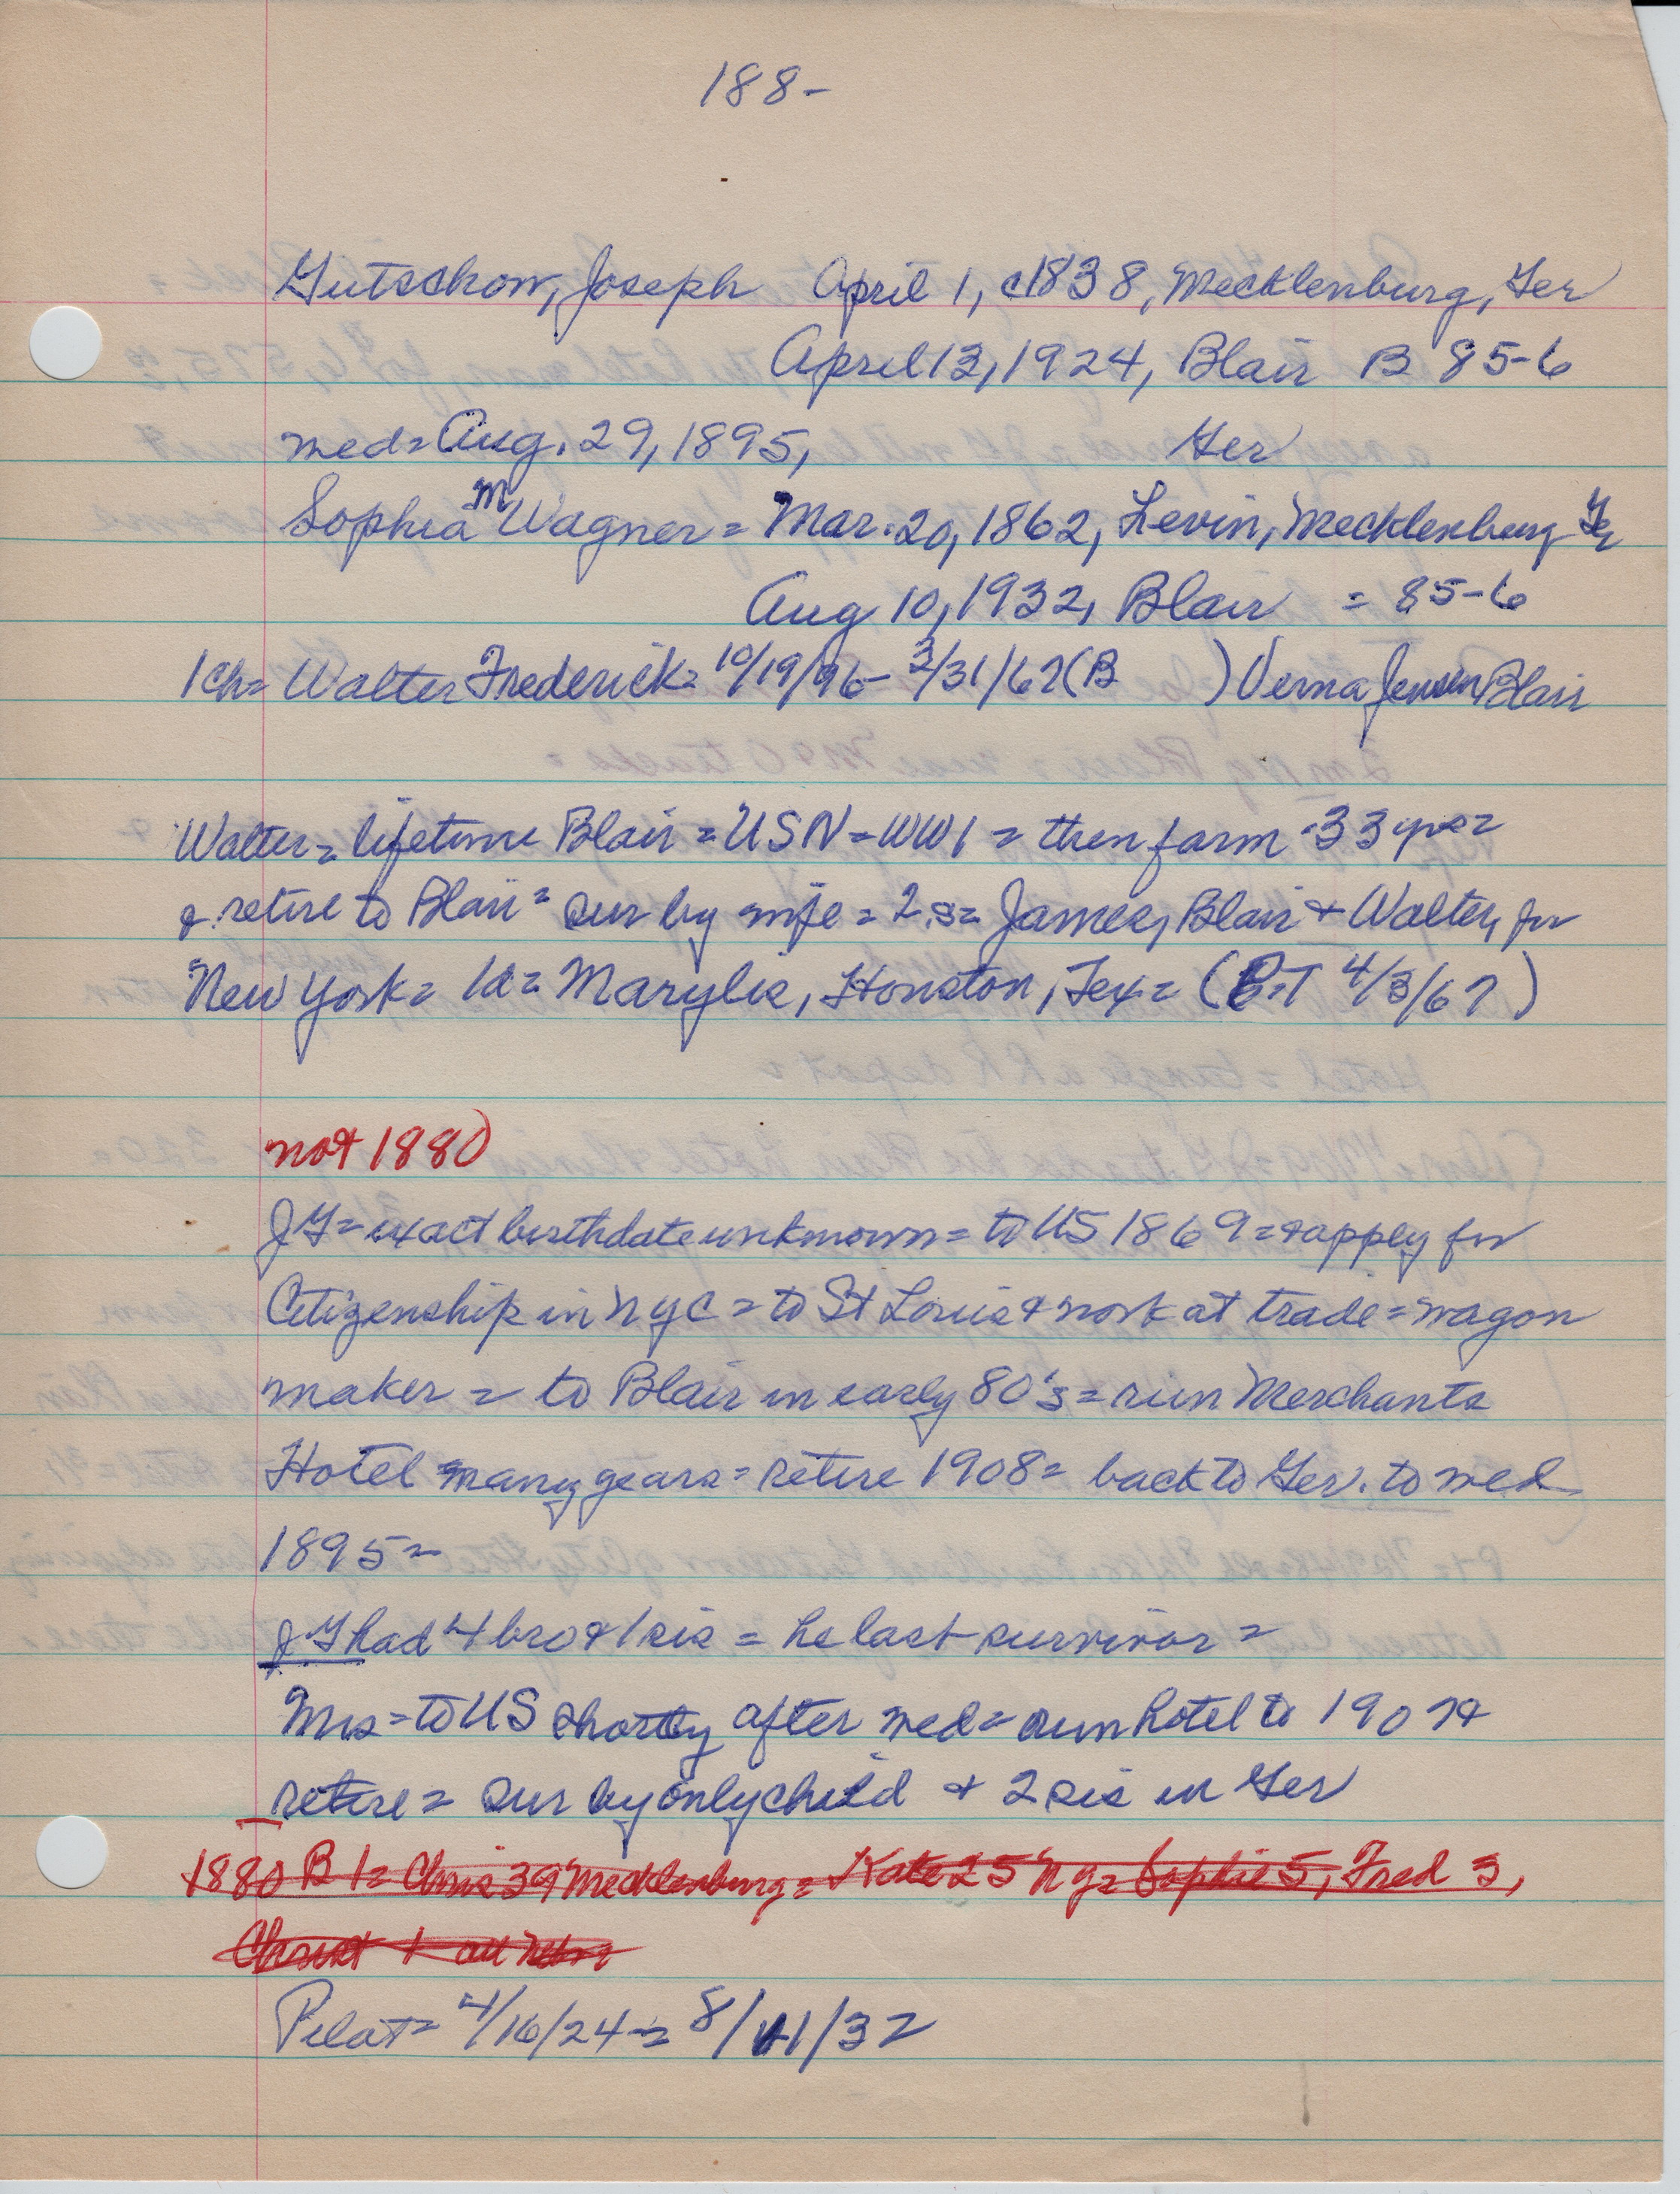 188-
Gutschow, Joseph April 1, c1838, Mecklenburg, Ger
April 13, 1924, Blair B 85-6
wed= Aug. 29, 1895, Ger
Sophia M Wagner = Mar. 20, 1862, Levin, Mecklenburg Ger
Aug 10, 1932, Blair = 85-6
1ch= Walter Frederick= 10/19/96- 3/31/67 (B ) Verna Jensen Blair
Walter = lifetime Blair = USN = WW1 = then farm 33 yrs =
& retire to Blair = sur by wife = 2 s= James, Blair & Walter, for
New York= 1d= Marylis, Houston, Tex= (P-T 4/3/67)
not 1880
JG= exact birthdate unknown= to US 1869= & apply for
Citizenship in NYC = to St Louis & work at trade = wagon
maker = to Blair in early 80's = run Merchants
Hotel many years = retire 1908 = back to Ger. to wed
1895=
JG had 4 bro & 1 sis = he last survivor =
Mrs = to US shortly after wed = run hotel to 1907 &
retire = sur by only child & 2 sis in Ger
1880 B 1= Chris 39 Mecklenburg= Kate 25 NY= Sophie 5, Fred 3,
1 all Nebr
Pilot= 4/16/24 = 8/11/32